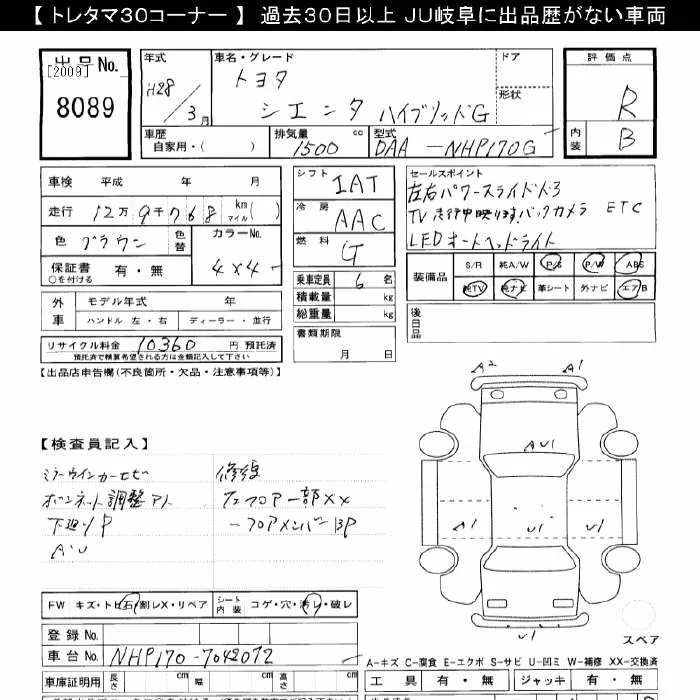 【トレタマ30コーナー】 過去30日以上 JU岐阜に出品歴がない車両
出品No. [2009] 8089
年式 H28/3月
車名・グレード トヨタ シエンタ ハイブリッドG
ドア
形状
評価点 R
内装 B
車歴 自家用・( )
排気量 1500 cc
型式 DAA-NHP170G
車検 平成 年 月
走行 12万9千768 km マイル( )
色 ブラウン 色替
カラーNo. 4X4
保証書 有・無
○を付ける
シフト IAT
冷房 AAC
燃料 G
乗車定員 6名
積載量 kg
総重量 kg
書類期限
月 日
セールスポイント
左右パワースライドドア
TV走行中映ります バックカメラ ETC
LEDオートヘッドライト
装備品 S/R 純A/W P/S P/W ABS
純TV 純ナビ 革シート 外ナビ エアB
後日品
外車 モデル年式 年
ハンドル 左・右 ディーラー・並行
リサイクル料金 10360 円 預託済
預託済で精算希望される方は金額記入して下さい
【出品店申告欄(不良箇所・欠品・注意事項等)】
【検査員記入】
ミラーウインカーヒビ
ボンネット調整アト
下廻りP
AU
修復
フロアー部XX
フロアメンバーBP
A2 A1
AU1
A1 U1 U1
U1
スペア
FW キズ・トビ石・割レX・リペア シート内装 コゲ・穴・汚レ・破レ
登録No.
車台No. NHP170-7042072
車庫証明用 長さ cm 幅 cm 高さ cm
A-キズ C-腐食 E-エクボ S-サビ U-凹ミ W-補修 XX-交換済
工具 有・無 ジャッキ 有・無